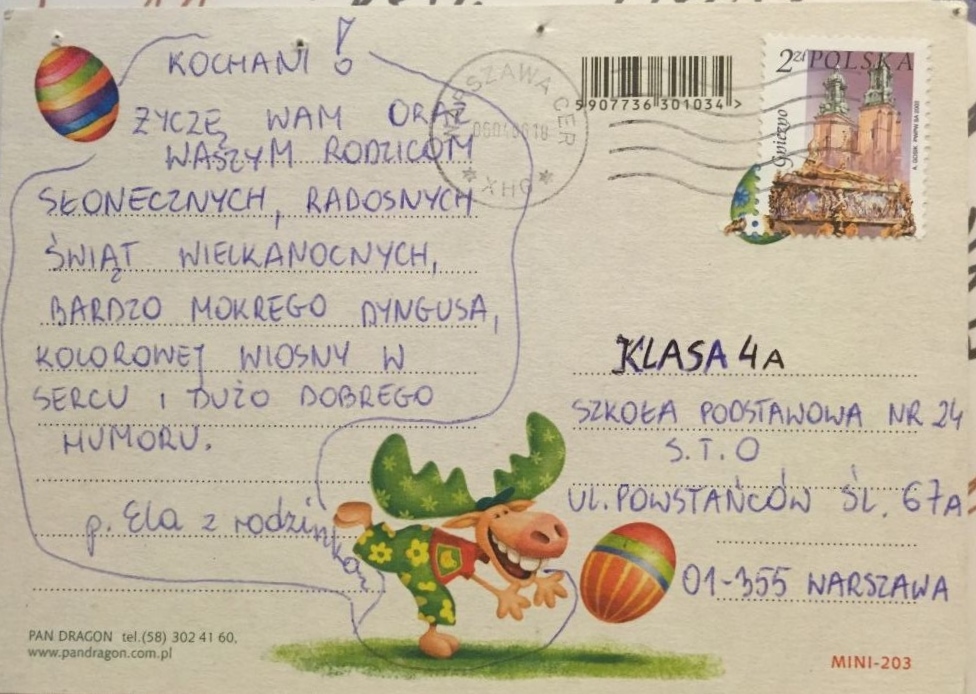 KOCHANI!
ŻYCZĘ WAM ORAZ
WASZYM RODZICOM
SŁONECZNYCH, RADOSNYCH
ŚWIĄT WIELKANOCNYCH,
BARDZO MOKREGO DYNGUSA,
KOLOROWEJ WIOSNY W
SERCU I DUŻO DOBREGO
HUMORU.
p. Ela z rodzinką
PAN DRAGON tel.(58) 302 41 60,
www.pandragon.com.pl
WARSZAWA CER
UHX
5907736 301034 >
2zł POLSKA
Gniezno
KLASA 4A
SZKOŁA PODSTAWOWA NR 24
S.T.O
UL. POWSTAŃCÓW ŚL. 67A
01-355 WARSZAWA
MINI-203